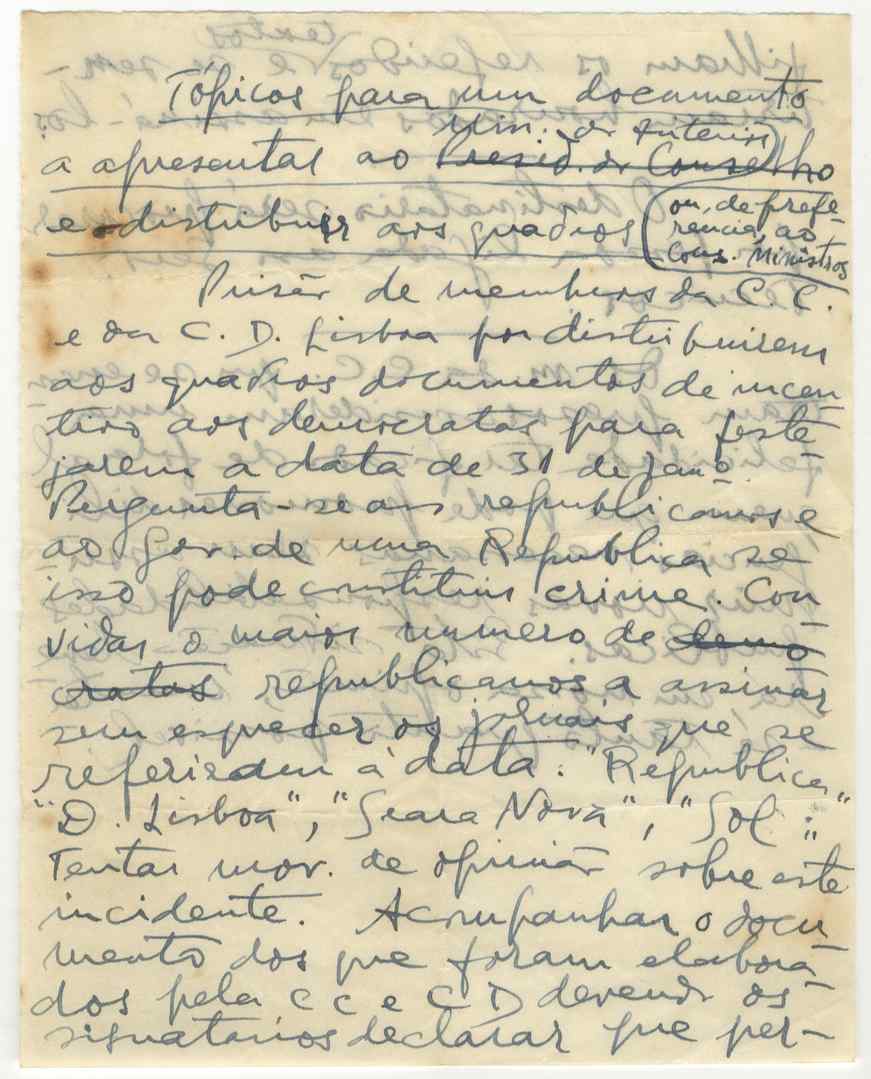 Tópicos para um documento
Min. do Interior
a apresentar ao Presid. do Conselho
e distribuir aos quadros (ou, de prefe-
rencia, ao
Cons. Ministros
Prisão de membros da C. C.
e da C. D. Lisboa por distribuirem
aos quadros documentos de incen
tivo aos democratas para feste-
jarem a data de 31 de Janº.
Pergunta-se aos republicanos e
ao Gov. de uma Republica se
isso pode constituir crime. Con
vidar o maior numero de demo-
cratas republicanos a assinar
sem esquecer os jornais que se
referiram à data: "Republica"
"D. Lisboa", "Seara Nova", "Sol":
Tentar mov. de opinião sobre este
incidente. Acompanhar o docu
mento dos que foram elabora-
dos pela C C e C D devendo os
signatarios declarar que per-